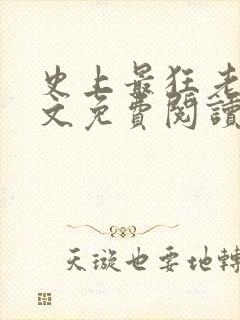 史上最狂老
文免費閱讀
天璇也要地轉